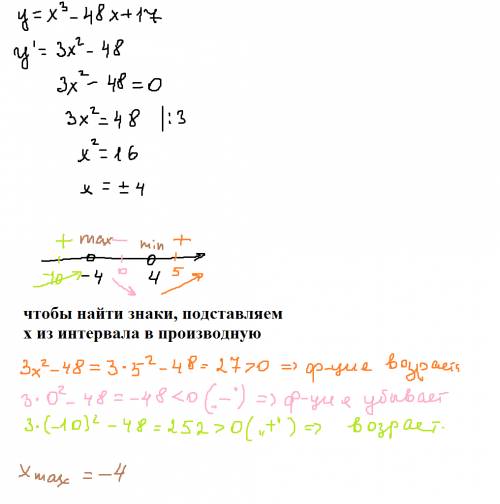 y = x³ - 48x + 17
y' = 3x² - 48
3x² - 48 = 0
3x² = 48 |:3
x² = 16
x = ± 4
+ max - min +
-10 -4 0 4 5
чтобы найти знаки, подставляем
х из интервала в производную
3x² - 48 = 3·5² - 48 = 27 > 0 => ф-ция возрает
3·0² - 48 = -48 < 0 („-“) => ф-ция убывает
3·(-10)² - 48 = 252 > 0 („+“) => возрает.
x max = -4